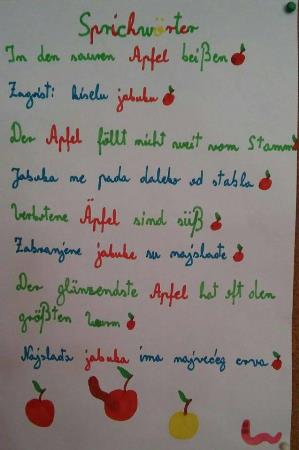 Sprichwörter
In den sauren Apfel beißen
Zagrist: kiselu jabuku
Der Apfel föllt nicht weit vom Stamm
Jabuka ne pada daleko od stabla
Verbotene Äpfel sind süß
Zabranjene jabuke su najslađe
Der glänzendste Apfel hat oft den
größten Wurm
Najslađa jabuka ima najvećeg crva